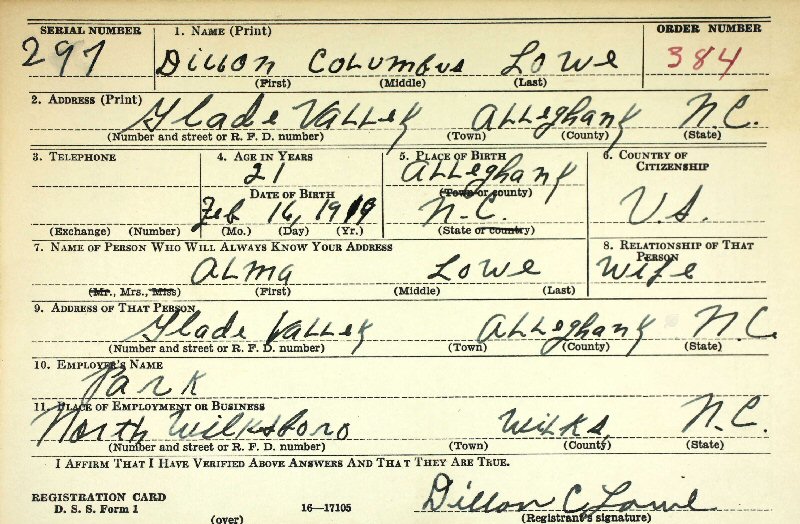 SERIAL NUMBER 1. NAME (Print) ORDER NUMBER
297 Dillon Columbus Lowe 384
(First) (Middle) (Last)
2. ADDRESS (Print)
Glade Valley Alleghany N.C.
(Number and street or R. F. D. number) (Town) (County) (State)
3. TELEPHONE 4. AGE IN YEARS 5. PLACE OF BIRTH 6. COUNTRY OF CITIZENSHIP
21 Alleghany
DATE OF BIRTH (Town or county)
Feb 16, 1919 N.C. U.S.
(Exchange) (Number) (Mo.) (Day) (Yr.) (State or country)
7. NAME OF PERSON WHO WILL ALWAYS KNOW YOUR ADDRESS 8. RELATIONSHIP OF THAT PERSON
Alma Lowe Wife
(Mr., Mrs., Miss) (First) (Middle) (Last)
9. ADDRESS OF THAT PERSON
Glade Valley Alleghany N.C.
(Number and street or R. F. D. number) (Town) (County) (State)
10. EMPLOYER'S NAME
Park
11. PLACE OF EMPLOYMENT OR BUSINESS
North Wilksboro Wilks, N.C.
(Number and street or R. F. D. number) (Town) (County) (State)
I AFFIRM THAT I HAVE VERIFIED ABOVE ANSWERS AND THAT THEY ARE TRUE.
REGISTRATION CARD Dillon C. Lowe
D. S. S. Form 1 (over) 16—17105 (Registrant's signature)